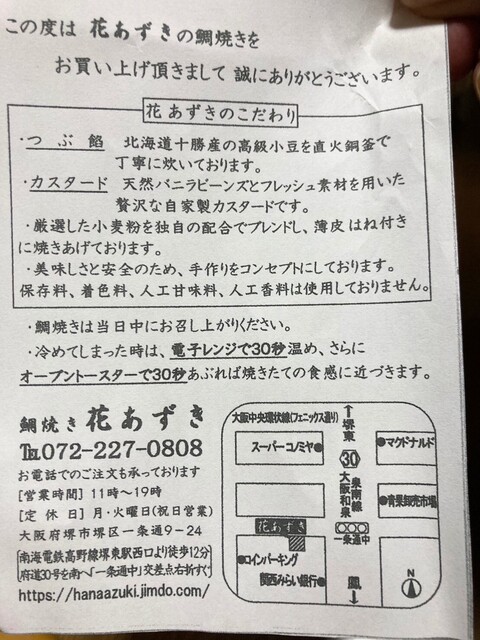 この度は 花あずきの鯛焼きを
お買い上げ頂きまして 誠にありがとうございます。
花あずきのこだわり
・つぶ餡 北海道十勝産の高級小豆を直火銅釜で
丁寧に炊いております。
・カスタード 天然バニラビーンズとフレッシュ素材を用いた
贅沢な自家製カスタードです。
・厳選した小麦粉を独自の配合でブレンドし、薄皮はね付き
に焼きあげております。
・美味しさと安全のため、手作りをコンセプトにしております。
保存料、着色料、人工甘味料、人工香料は使用しておりません。
・鯛焼きは当日中にお召し上がりください。
・冷めてしまった時は、電子レンジで30秒温め、さらに
オーブントースターで30秒あぶれば焼きたての食感に近づきます。
鯛焼き 花あずき
℡072-227-0808
お電話でのご注文も承っております
[営業時間] 11時~19時
[定休日] 月・火曜日(祝日営業)
大阪府堺市堺区一条通9-24
南海電鉄高野線堺東駅西口より徒歩12分
府道30号を南へ「一条通中」交差点右折すぐ
https://hanaazuki.jimdo.com/
大阪中央環状線(フェニックス通り)
↑堺東
スーパーコノミヤ
マクドナルド
30
大阪和泉泉南線
青果卸売市場
花あずき
一条通中
コインパーキング
関西みらい銀行
鳳↓
N